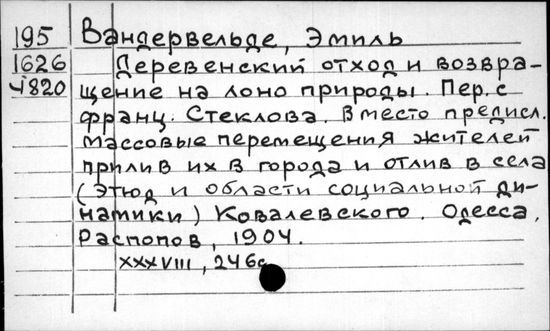 195 Вандервельде, Эмиль
1626 Деревенский отход и возвра-
4820 щение на лоно природы. Пер. с
франц. Стеклова. Вместо предисл.
Массовые перемещения жителей
прилив их в города и отлив в села
(Этюд и области социальной ди-
намики) Ковалевского. Одесса,
Распопов, 1904.
XXXVIII, 246с.